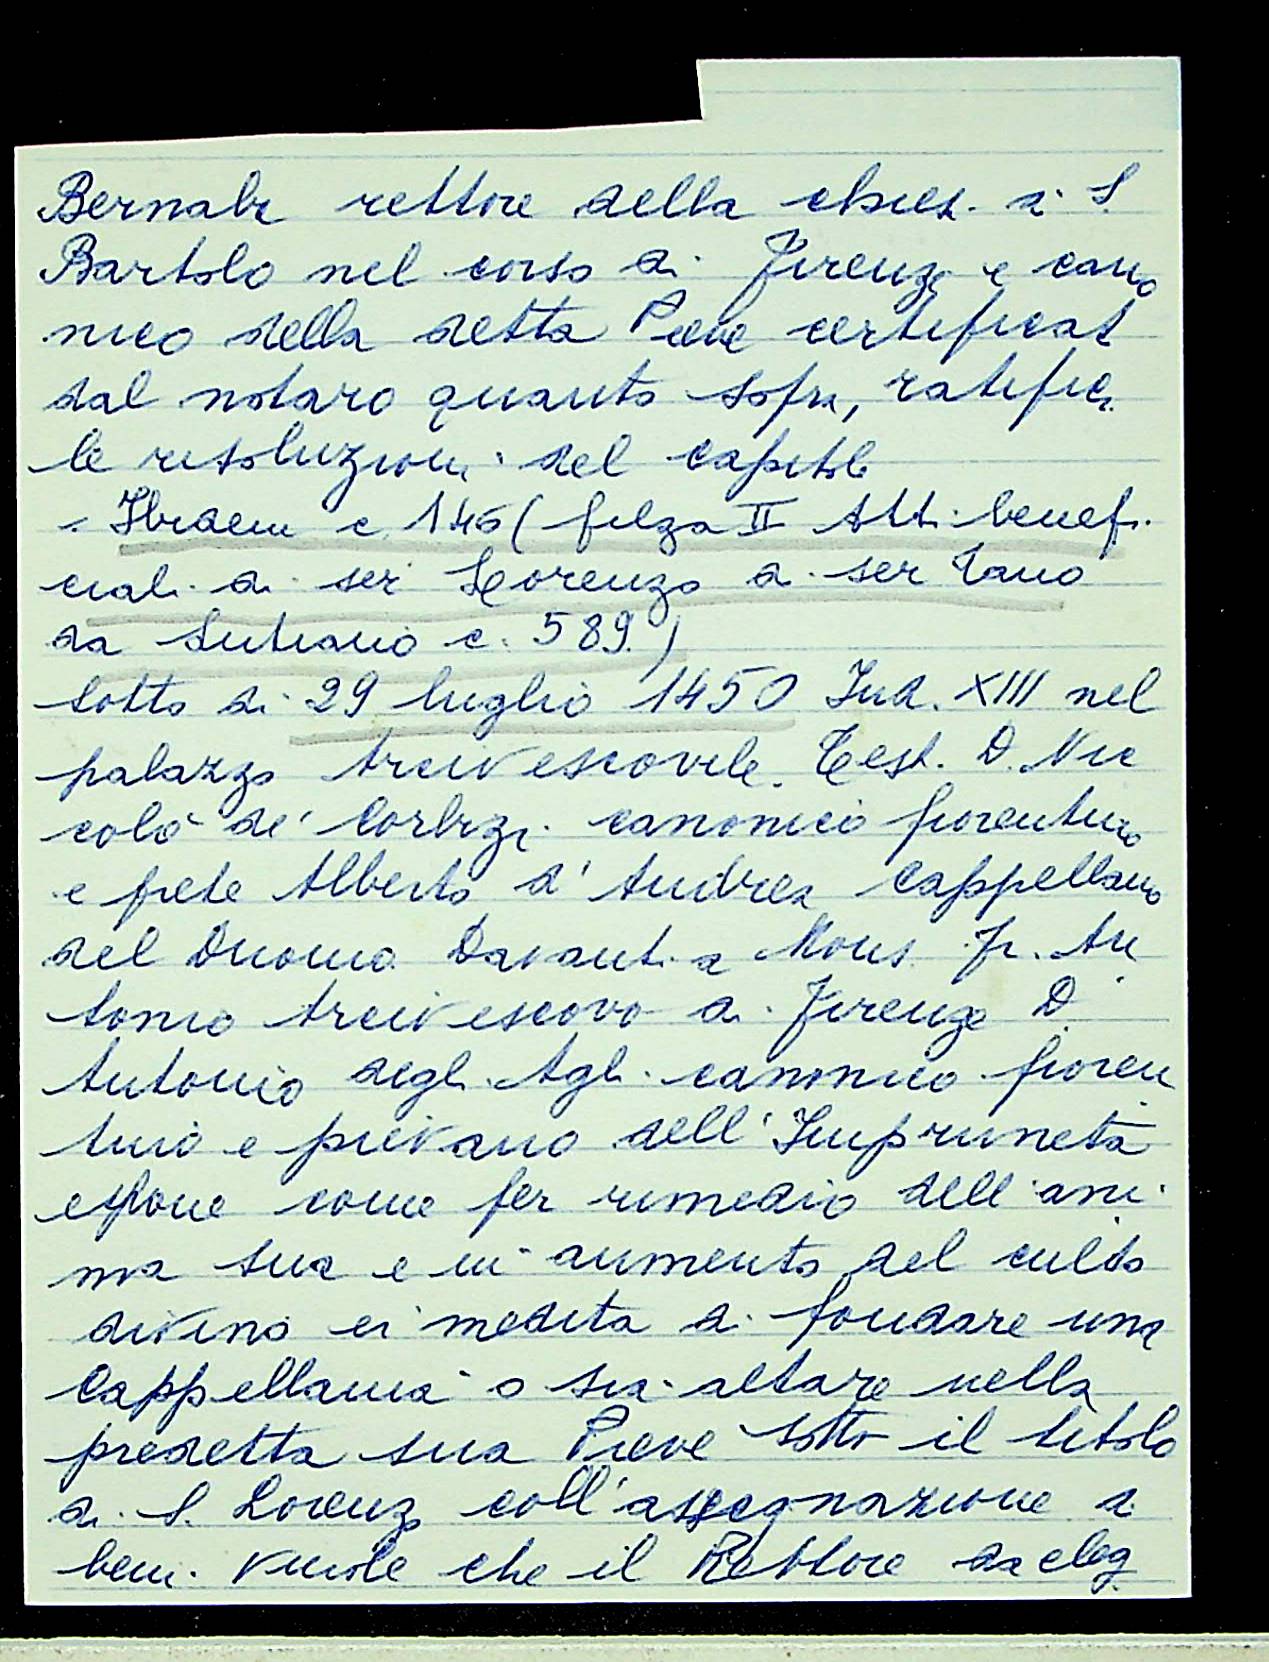 Bernaba rettore della chiesa di S.
Bartolo nel corso di Firenze e cano
nico della detta Pieve certificat
dal notaro quanto sopra, ratifica
le risoluzioni del capitolo
Ibidem c. 146 (filza II Atti benefi
ciali di ser Lorenzo di ser Tano
da Lutiano c. 589.)
sotto di 29 luglio 1450 Ind. XIII nel
palazzo Arcivescovile. Test. D. Nic
colò de' Corbizi canonico fiorentino
e prete Alberto d'Andrea Cappellano
del Duomo Davanti a Mons. fr. An
tonio Arcivescovo di Firenze D.
Antonio degli Agli canonico fioren
tino e pievano dell'Impruneta
espone come per rimedio dell'ani
ma sua e in aumento del culto
divino ei medita di fondare una
Cappellania o sia altare nella
predetta sua Pieve sotto il titolo
di S. Lorenzo coll'assegnazione di
beni. Vuole che il Rettore da eleg